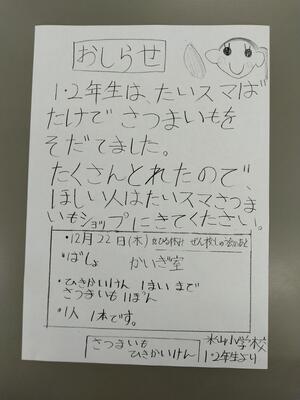 おしらせ
1・2年生は、たいスマば
たけでさつまいもを
そだてました。
たくさんとれたので、
ほしい人はたいスマさつま
いもショップにきてください。
・12月22日(木)
・ばしょ かいぎ室
・ひきかいけん 1まいまで
さつまいも1ぽん
・1人 1本です。
さつまいも
ひきかいけん
小学校
1・2年生より